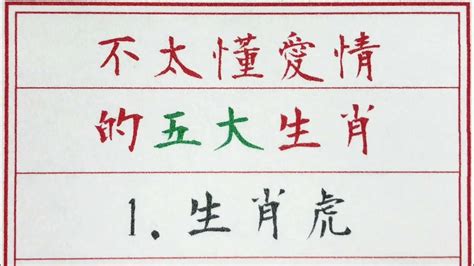 不太懂愛情
的五大生肖
1.生肖虎